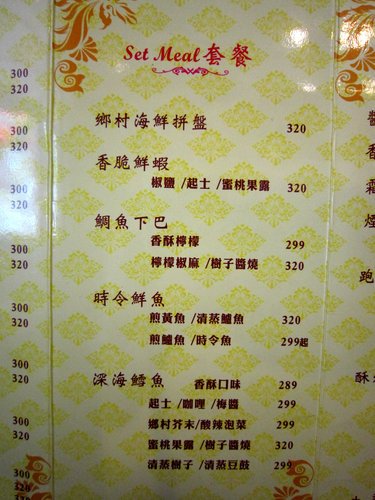 Set Meal 套餐
鄉村海鮮拼盤 320
香脆鮮蝦
椒鹽 /起士 /蜜桃果露 320
鯛魚下巴
香酥檸檬 299
檸檬椒麻 /樹子醬燒 320
時令鮮魚
煎黃魚 /清蒸鱸魚 320
煎鱸魚 /時令魚 299起
深海鱈魚 香酥口味 289
起士 /咖哩 /梅醬 299
鄉村芥末/酸辣泡菜 299
蜜桃果露 /樹子醬燒 320
清蒸樹子 /清蒸豆鼓 299
300
320
300
320
300
320
300
320
300
320
300
320
300
320
320